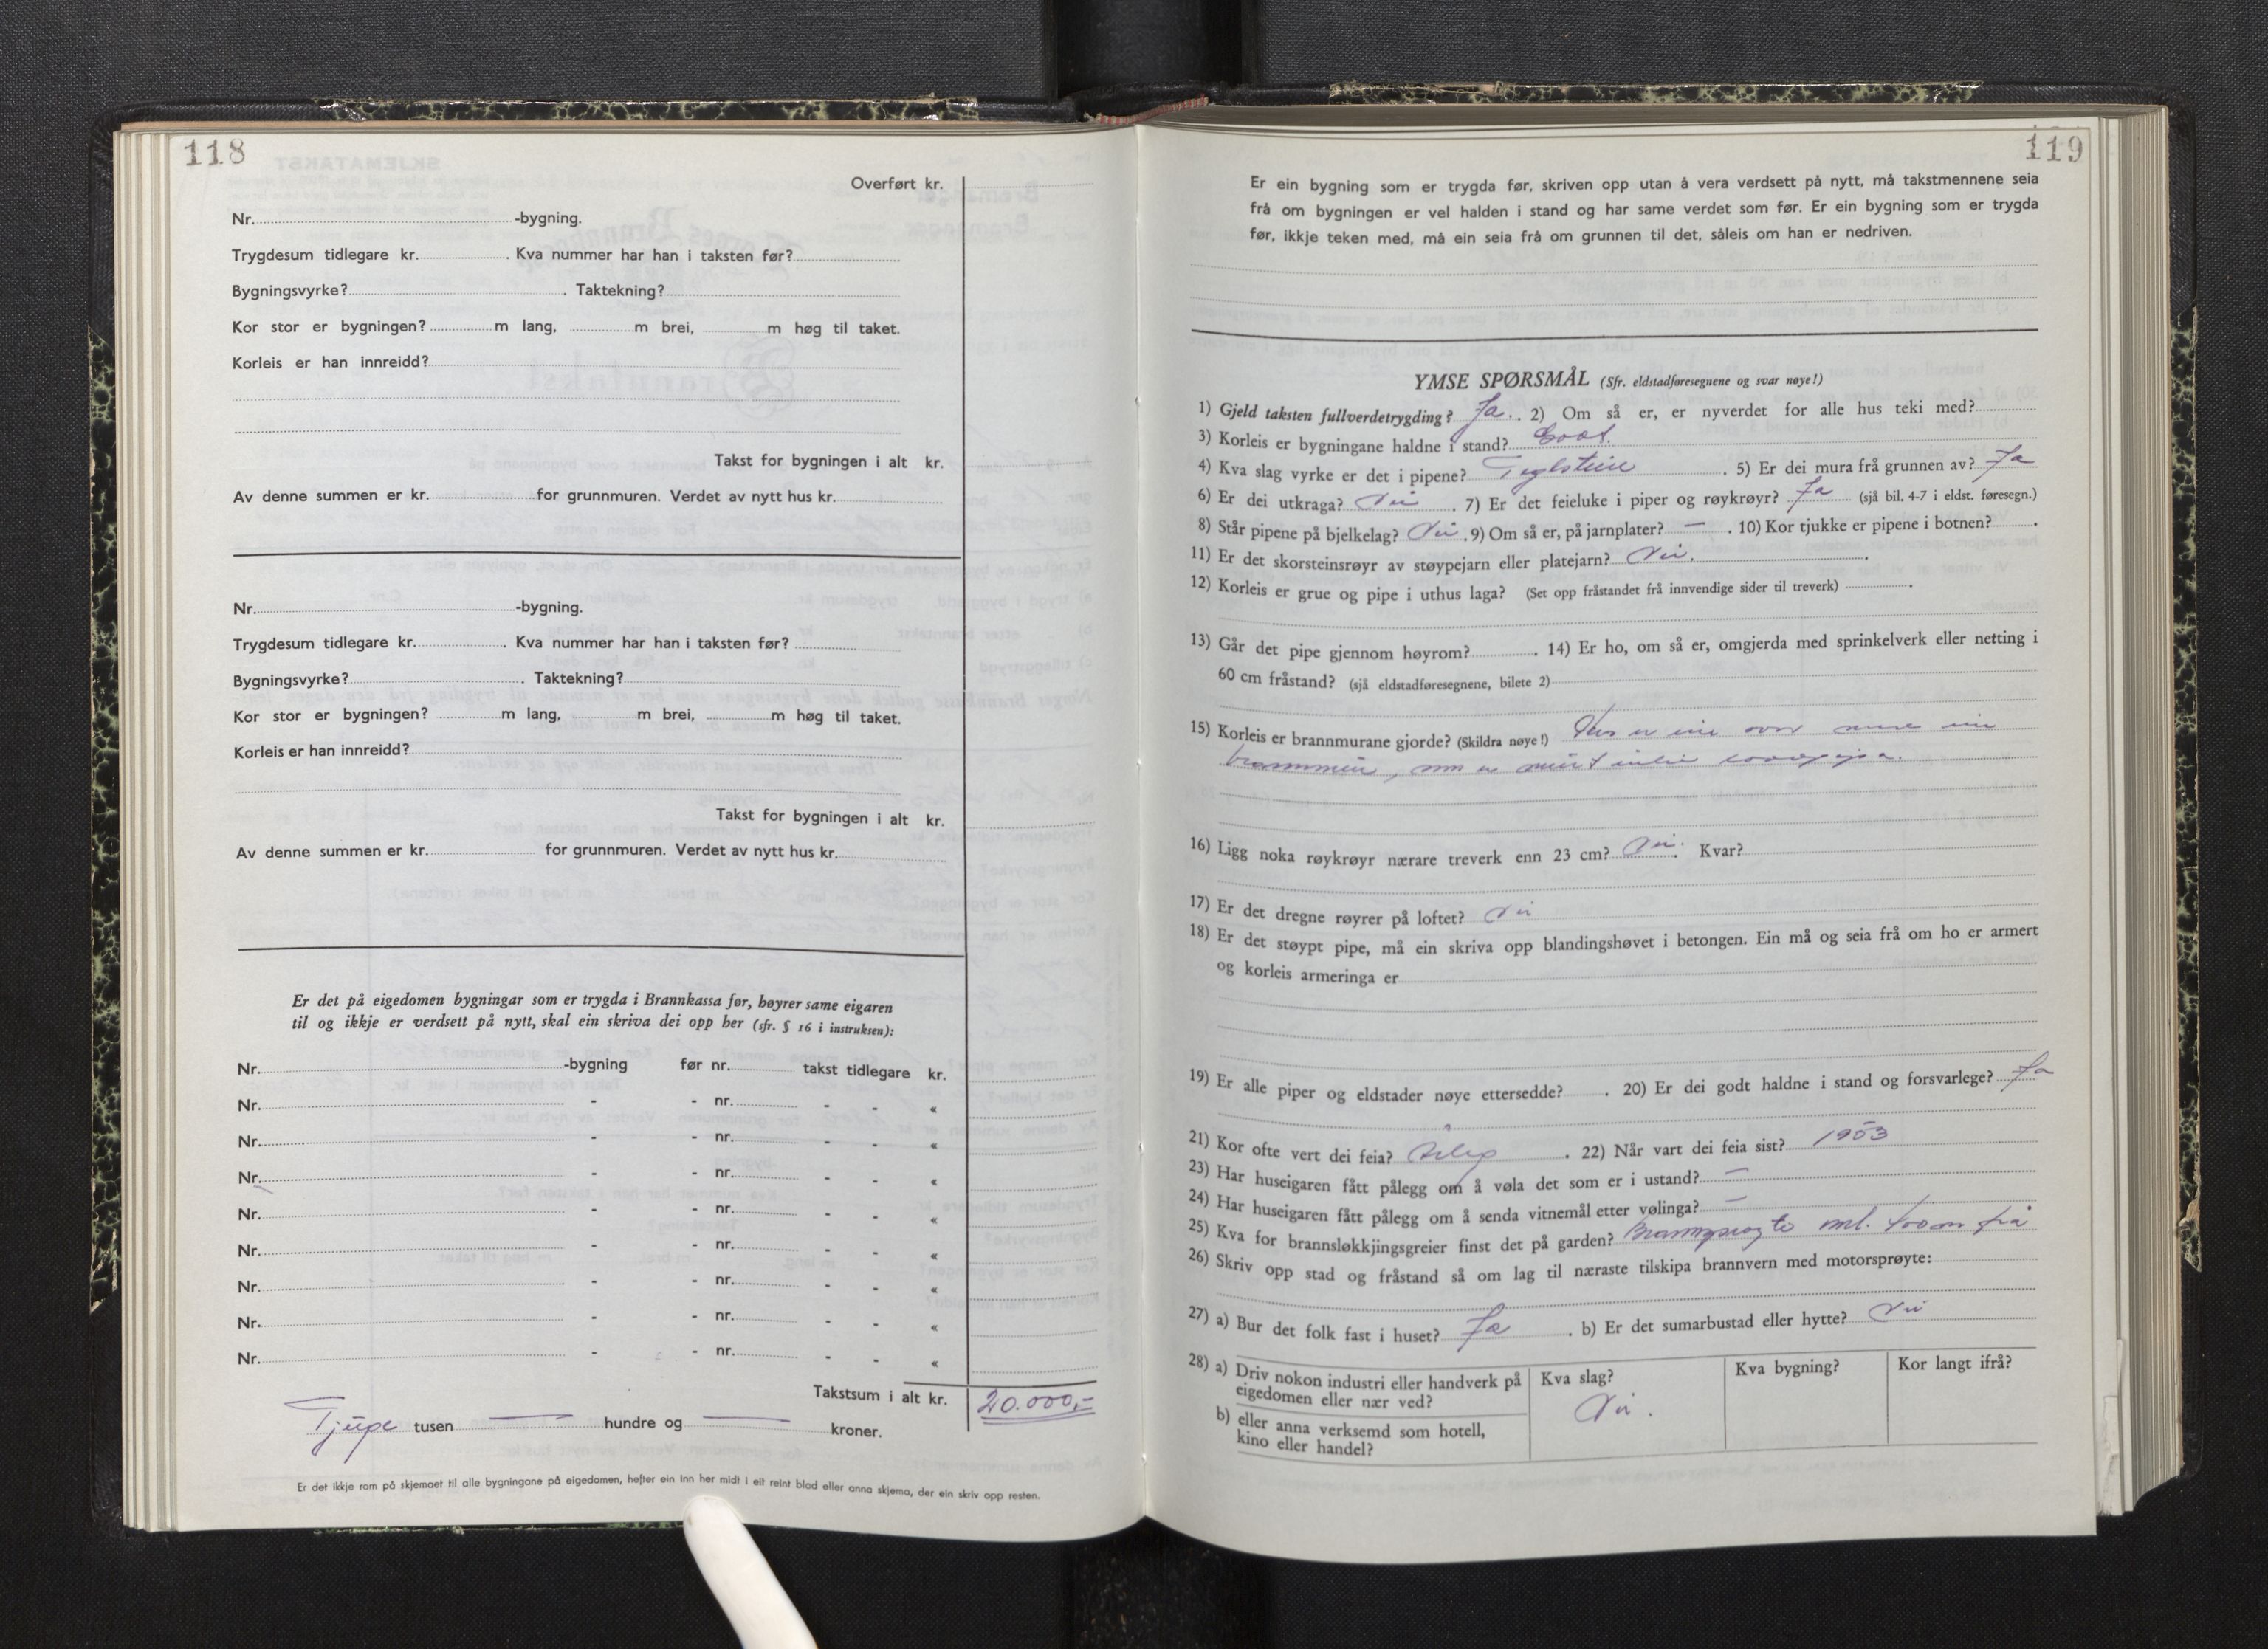 118
Overført kr.
Nr. -bygning.
Trygdesum tidlegare kr. . Kva nummer har han i taksten før?
Bygningsvyrke? . Taktekning?
Kor stor er bygningen? m lang, m brei, m høg til taket.
Korleis er han innreidd?
Takst for bygningen i alt kr.
Av denne summen er kr. for grunnmuren. Verdet av nytt hus kr.
Nr. -bygning.
Trygdesum tidlegare kr. . Kva nummer har han i taksten før?
Bygningsvyrke? . Taktekning?
Kor stor er bygningen? m lang, m brei, m høg til taket.
Korleis er han innreidd?
Takst for bygningen i alt kr.
Av denne summen er kr. for grunnmuren. Verdet av nytt hus kr.
Er det på eigedomen bygningar som er trygda i Brannkassa før, høyrer same eigaren
til og ikkje er verdsett på nytt, skal ein skriva dei opp her (sfr. § 16 i instruksen):
Nr. -bygning før nr. takst tidlegare kr.
Nr. - - nr. - - «
Nr. - - nr. - - «
Nr. - - nr. - - «
Nr. - - nr. - - «
Nr. - - nr. - - «
Nr. - - nr. - - «
Nr. - - nr. - - «
Nr. - - nr. - - «
Takstsum i alt kr. 20.000,-
Tjupe tusen — hundre og — kroner.
Er det ikkje rom på skjemaet til alle bygningane på eigedomen, hefter ein inn her midt i eit reint blad eller anna skjema, der ein skriv opp resten.
119
Er ein bygning som er trygda før, skriven opp utan å vera verdsett på nytt, må takstmennene seia
frå om bygningen er vel halden i stand og har same verdet som før. Er ein bygning som er trygda
før, ikkje teken med, må ein seia frå om grunnen til det, såleis om han er nedriven.
YMSE SPØRSMÅL (Sfr. eldstadføresegnene og svar nøye!)
1) Gjeld taksten fullverdetrygding? Ja. . 2) Om så er, er nyverdet for alle hus teki med?
3) Korleis er bygningane haldne i stand? Godt.
4) Kva slag vyrke er det i pipene? Teglstein . 5) Er dei mura frå grunnen av? Ja
6) Er dei utkraga? Nei . 7) Er det feieluke i piper og røykrøyr? Ja (sjå bil. 4-7 i eldst. føresegn.)
8) Står pipene på bjelkelag? Nei . 9) Om så er, på jarnplater? — . 10) Kor tjukke er pipene i botnen? .
11) Er det skorsteinsrøyr av støypejarn eller platejarn? Nei. .
12) Korleis er grue og pipe i uthus laga? (Set opp fråstandet frå innvendige sider til treverk) .
13) Går det pipe gjennom høyrom? . 14) Er ho, om så er, omgjerda med sprinkelverk eller netting i
60 cm fråstand? (sjå eldstadføresegnene, bilete 2)
15) Korleis er brannmurane gjorde? (Skildra nøye!)
16) Ligg noka røykrøyr nærare treverk enn 23 cm? Nei. . Kvar?
17) Er det dregne røyrer på loftet? Nei
18) Er det støypt pipe, må ein skriva opp blandingshøvet i betongen. Ein må og seia frå om ho er armert
og korleis armeringa er
19) Er alle piper og eldstader nøye ettersedde? . 20) Er dei godt haldne i stand og forsvarlege? Ja
21) Kor ofte vert dei feia? Årleg . 22) Når vart dei feia sist? 1953
23) Har huseigaren fått pålegg om å vøla det som er i ustand? —
24) Har huseigaren fått pålegg om å senda vitnemål etter vølinga? —
25) Kva for brannsløkkjingsgreier finst det på garden? Brannsprøyte frå
26) Skriv opp stad og fråstand så om lag til næraste tilskipa brannvern med motorsprøyte:
27) a) Bur det folk fast i huset? Ja . b) Er det sumarbustad eller hytte? Nei
28) a) Driv nokon industri eller handverk på eigedomen eller nær ved? Kva slag? Kva bygning? Kor langt ifrå?
Nei.
b) eller anna verksemd som hotell, kino eller handel?